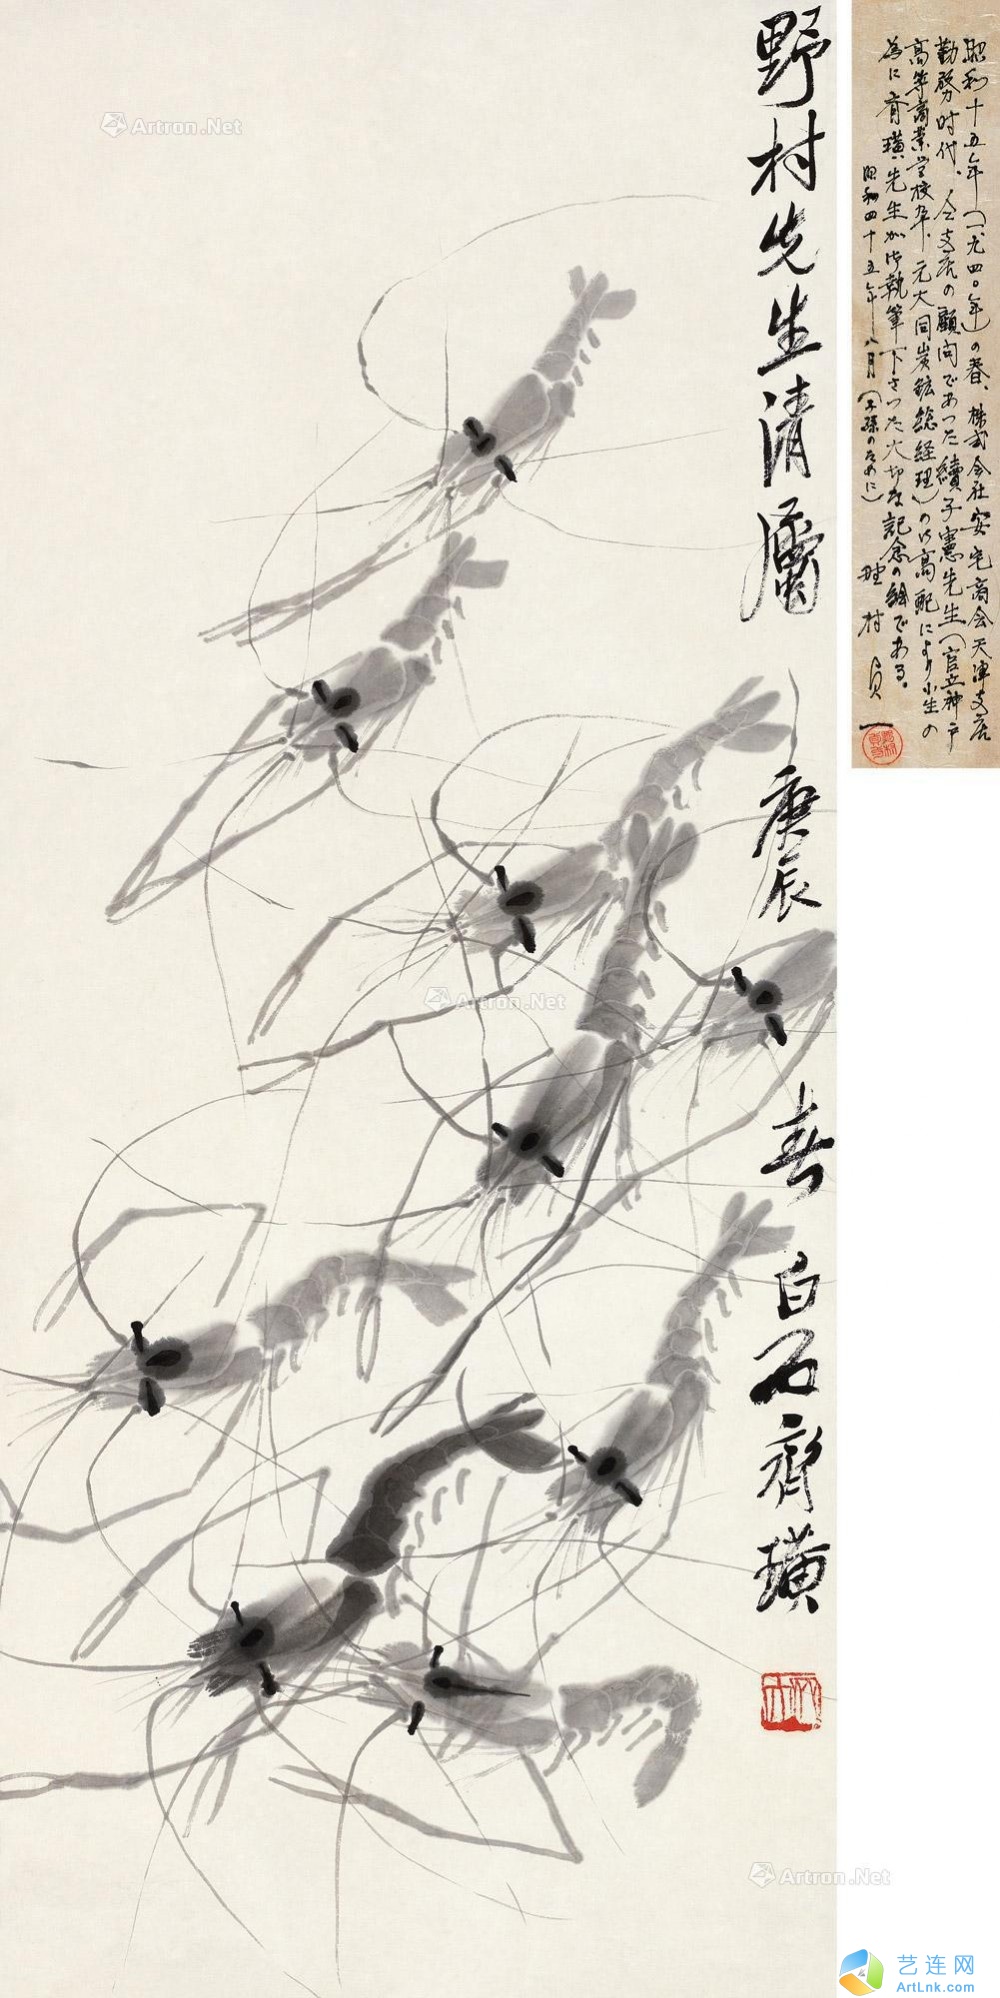 野村先生清属 庚辰 春 白石齊璜
昭和十五年(一九四〇年)の春、株式会社安宅商会天津支店
勤務时代、仝支店の顧问であった續子憲先生(官立神戸
高等商業学校卒、元大同炭鉱総経理)の御高配により小生の
為に斉璜先生が御執筆下さった大切な記念の絵である。
昭和四十五年八月(子孫のために) 野村
Artron.Net
Artron.Net
Artron.Net
艺连网
ArtLnk.com